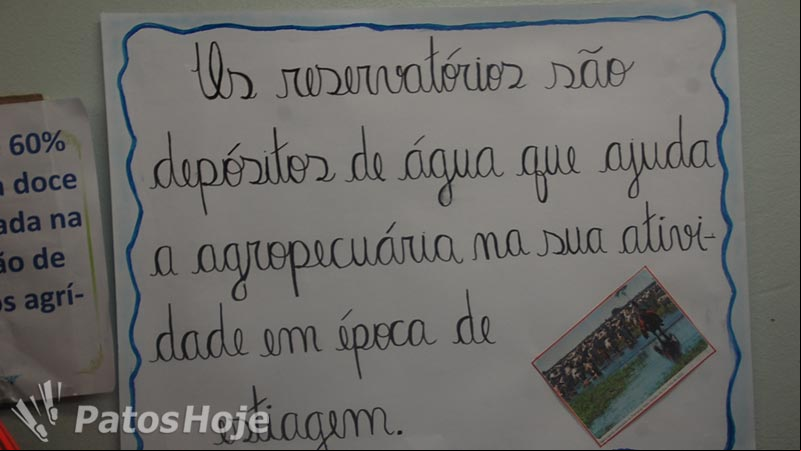 Os reservatórios são
depósitos de água que ajuda
a agropecuária na sua ativi-
dade em época de
estiagem.
60%
doce
ada na
ão de
os agrí-
PatosHoje